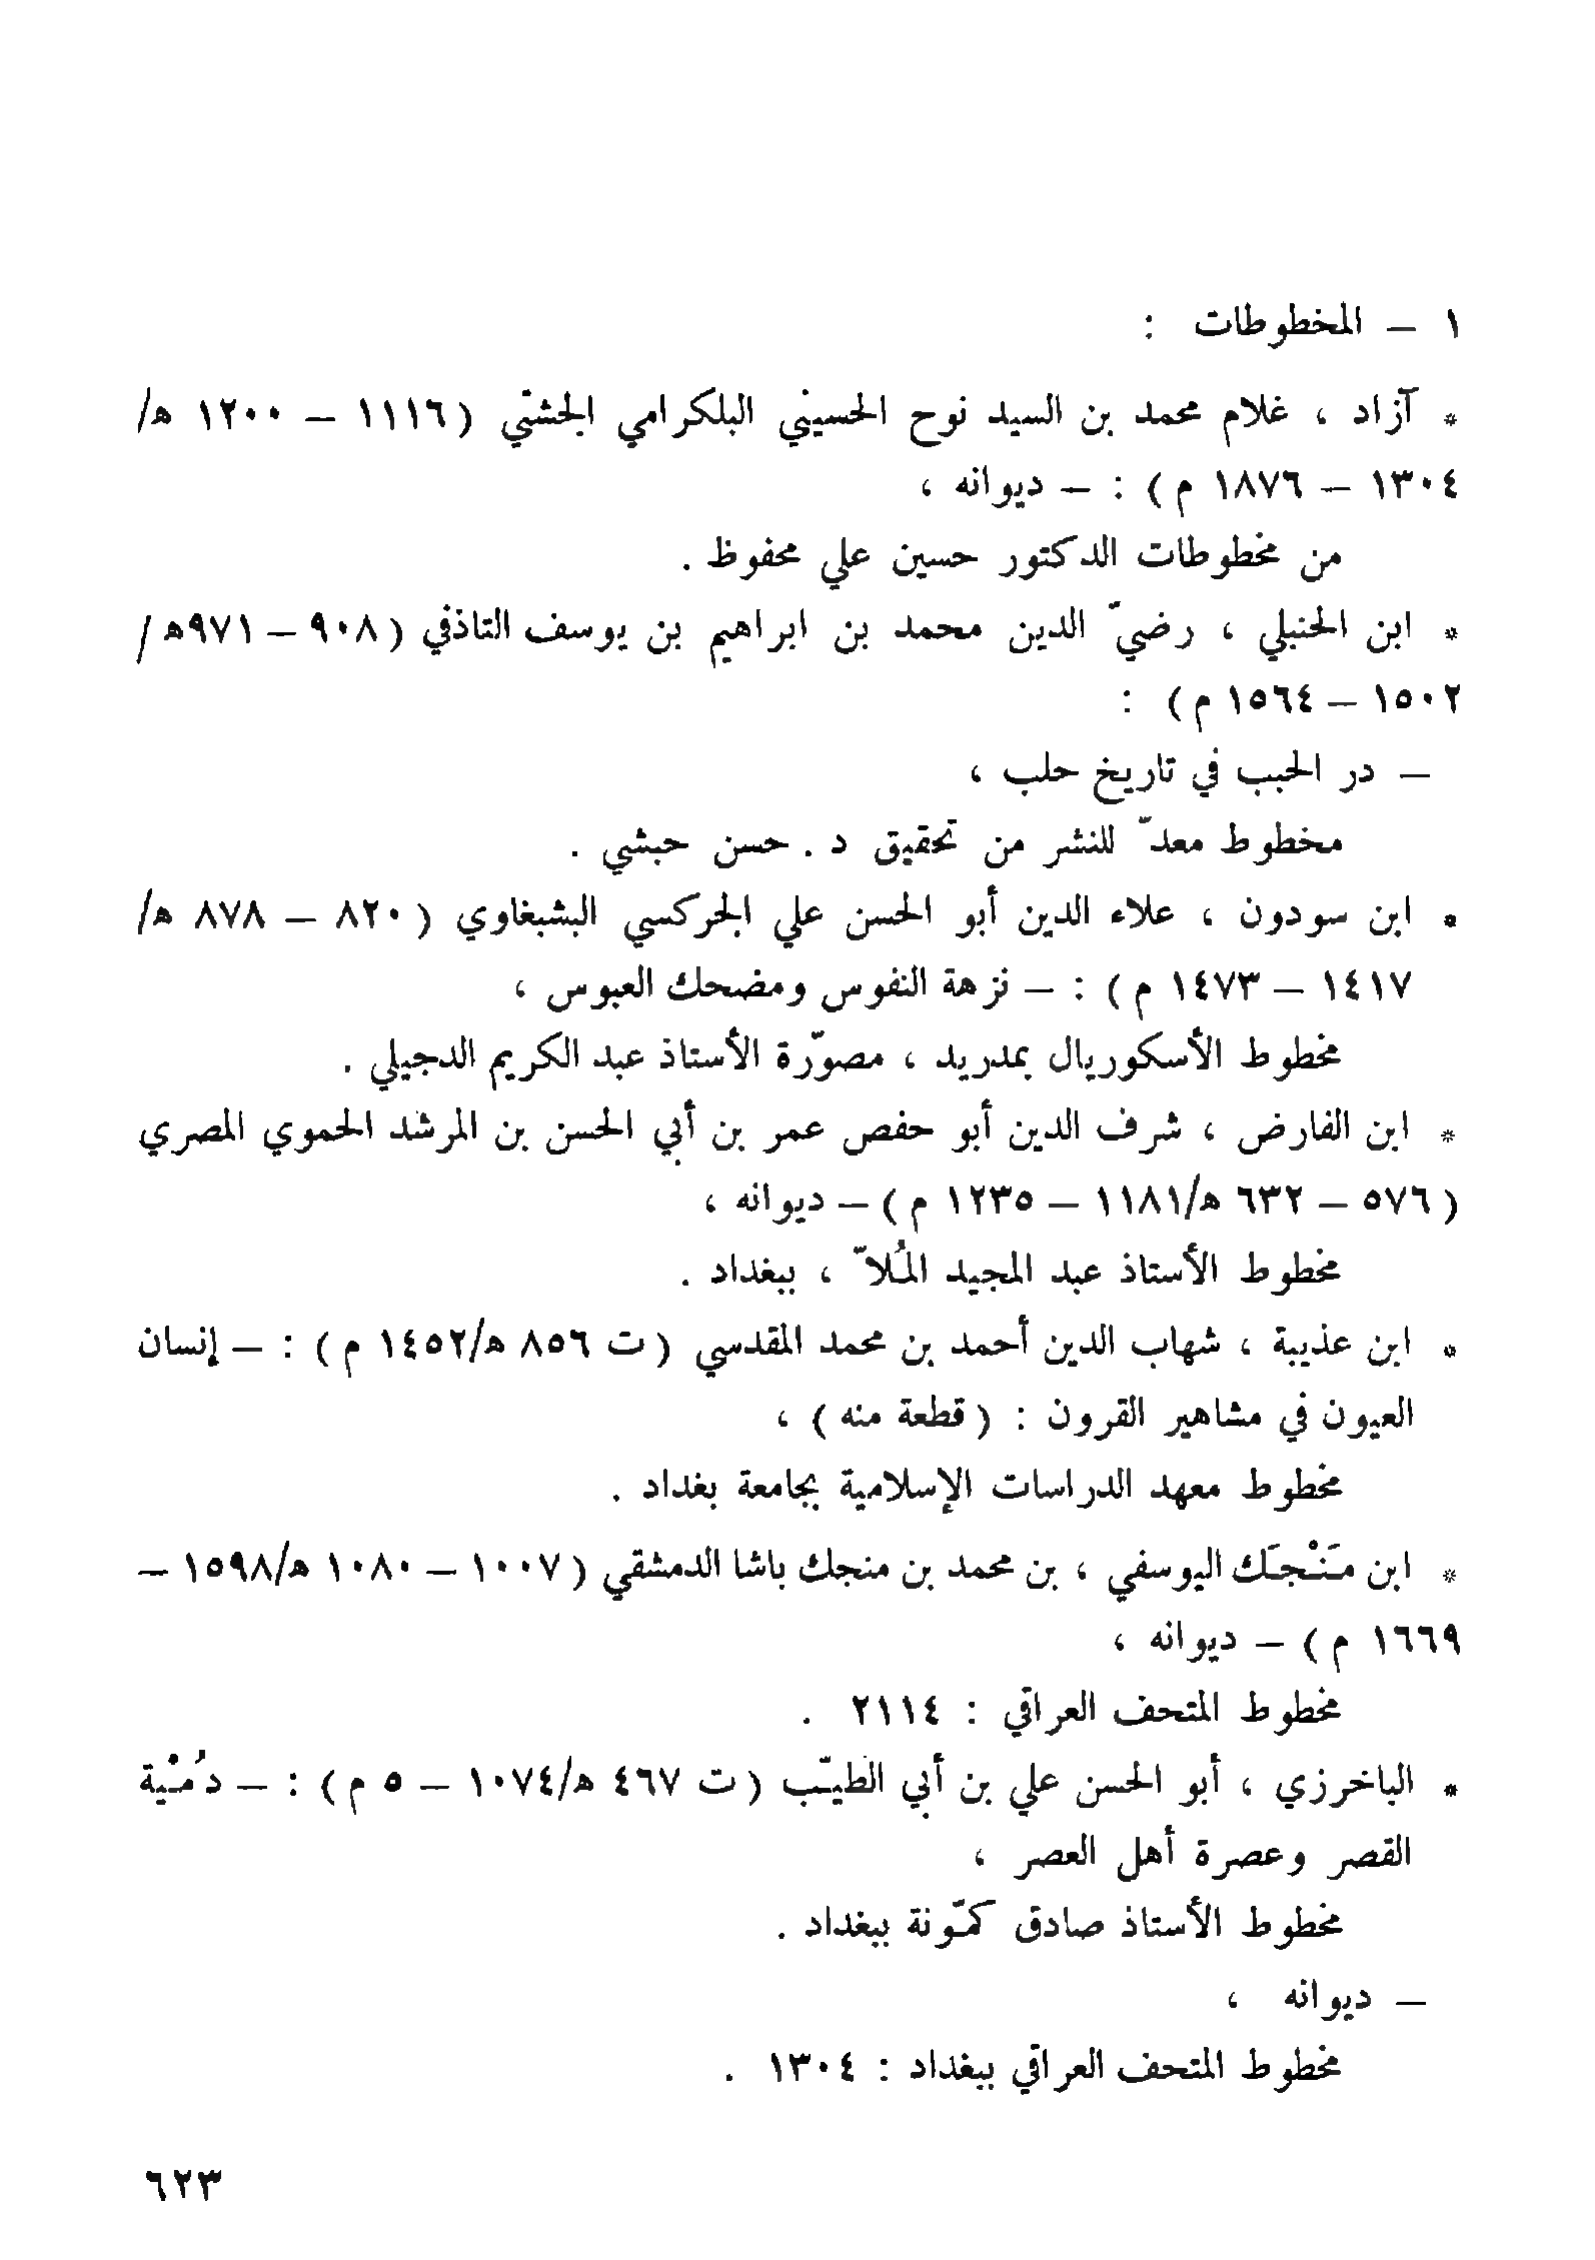 ١ – المخطوطات :
* آزاد ، غلام محمد بن السيد نوح الحسيني البلكرامي الجشتي ( ١١١٦ – ١٢٠٠ ه/
١٣٠٤ – ١٨٧٦ م ) : – ديوانه ،
من مخطوطات الدكتور حسين علي محفوظ .
* ابن الحنبلي ، رضيّ الدين محمد بن ابراهيم بن يوسف التاذفي ( ٩٠٨ – ٩٧١ه /
١٥٠٢ – ١٥٦٤ م ) :
– در الحبب في تاريخ حلب ،
مخطوط معدّ للنشر من تحقيق د . حسن حبشي .
* ابن سودون ، علاء الدين أبو الحسن علي الجركسي البشبغاوي ( ٨٢٠ – ٨٧٨ ه/
١٤١٧ – ١٤٧٣ م ) : – نزهة النفوس ومضحك العبوس ،
مخطوط الأسكوريال بمدريد ، مصوّرة الأستاذ عبد الكريم الدجيلي .
* ابن الفارض ، شرف الدين أبو حفص عمر بن أبي الحسن بن المرشد الحموي المصري
( ٥٧٦ – ٦٣٢ ه/١١٨١ – ١٢٣٥ م ) – ديوانه ،
مخطوط الأستاذ عبد المجيد المُلاّ ، ببغداد .
* ابن عذيبة ، شهاب الدين أحمد بن محمد المقدسي ( ت ٨٥٦ ه/١٤٥٢ م ) : – إنسان
العيون في مشاهير القرون : ( قطعة منه ) ،
مخطوط معهد الدراسات الإسلامية بجامعة بغداد .
* ابن مَنْجَك اليوسفي ، بن محمد بن منجك باشا الدمشقي ( ١٠٠٧ – ١٠٨٠ ه/١٥٩٨ –
١٦٦٩ م ) – ديوانه ،
مخطوط المتحف العراقي : ٢١١٤ .
* الباخرزي ، أبو الحسن علي بن أبي الطيّب ( ت ٤٦٧ ه/١٠٧٤ – ٥ م ) : – دُمْية
القصر وعصرة أهل العصر ،
مخطوط الأستاذ صادق كمّونة ببغداد .
– ديوانه ،
مخطوط المتحف العراقي ببغداد : ١٣٠٤ .
٦٢٣